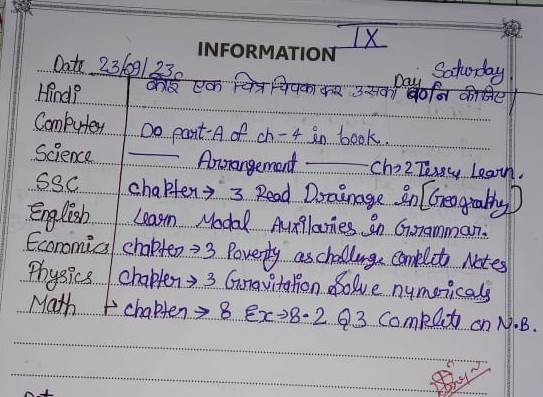 IX
INFORMATION
Date 23/09/23 Day Saturday
Hindi कोई एक चित्र चिपका कर उसका वर्णन कीजिए
Computer Do part-A of ch-4 in book.
Science Arrangement Ch-2 Tissu Learn.
SSC chapter → 3 Read Drainage in [Geography]
English Learn Modal Auxilaries in Grammar.
Economics chapter → 3 Poverty as challenge complete Notes
Physics chapter → 3 Gravitation Solve numericals
Math → chapter → 8 Ex → 8.2 Q3 Complite on N.B.